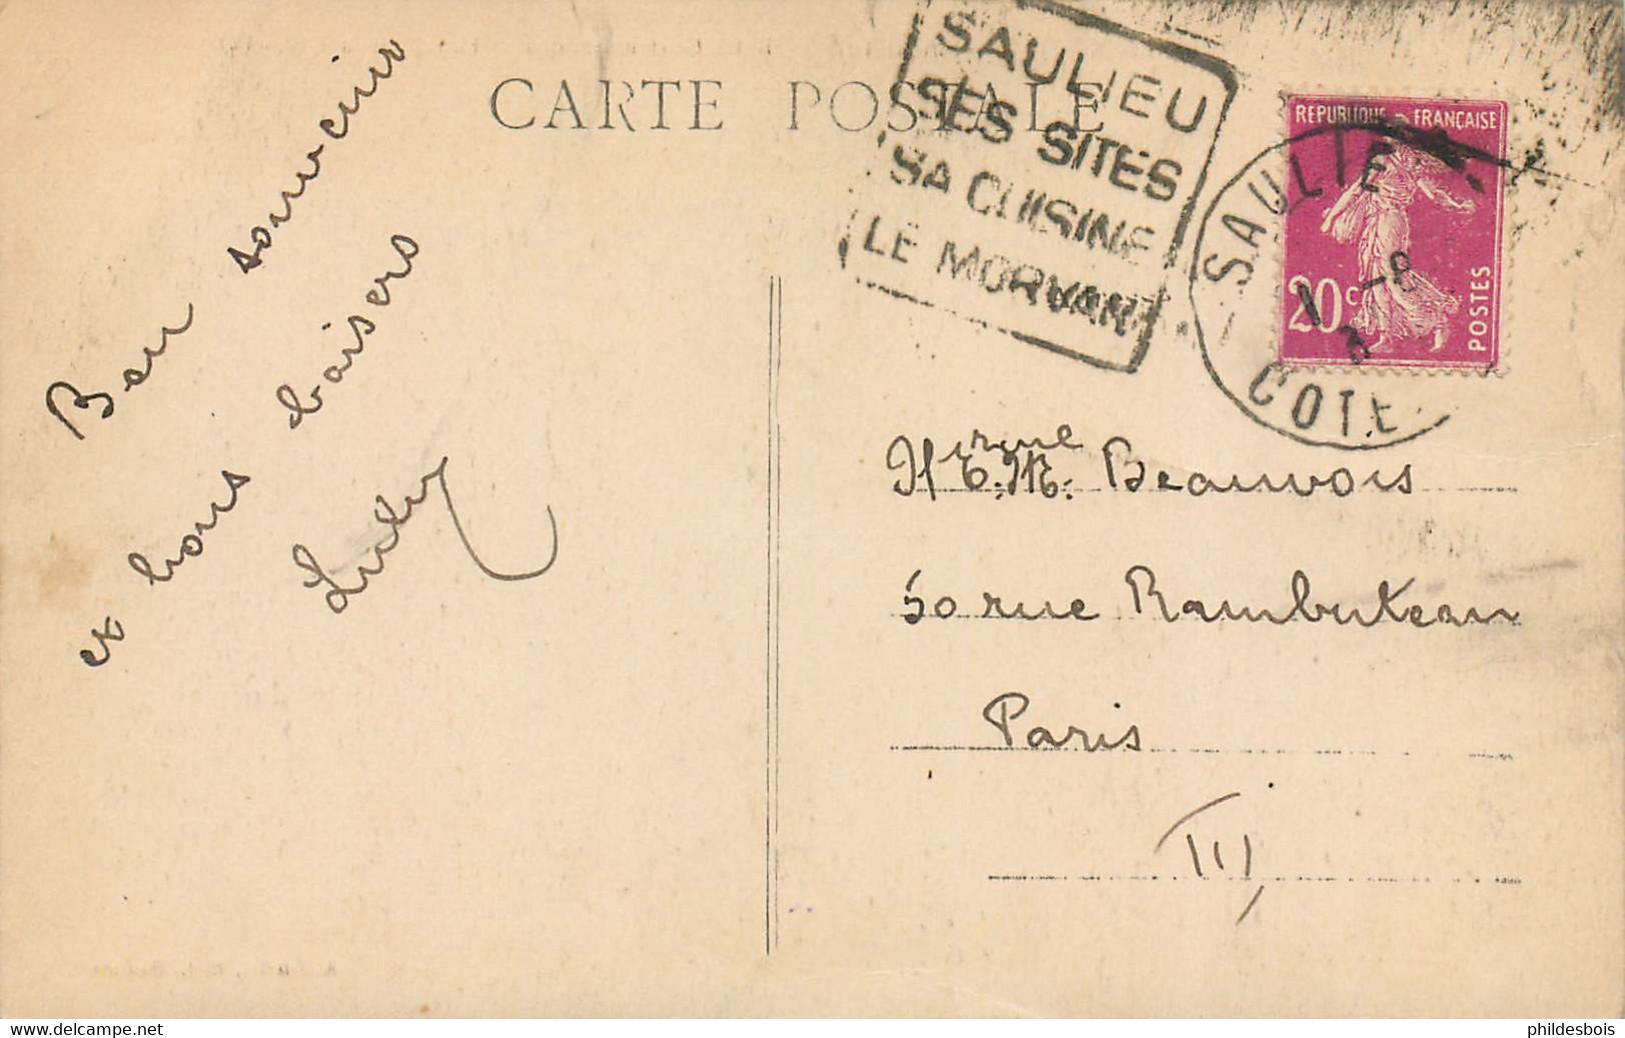 CARTE POSTALE
SAULIEU
SES SITES
SA CUISINE
LE MORVAN
REPUBLIQUE FRANÇAISE
20c
POSTES
SAULIE
1 -8
3
COTE
Bon souvenir
et bons baisers
Beauvois
50 rue Rambuteau
Paris
delcampe.net
phildesbois